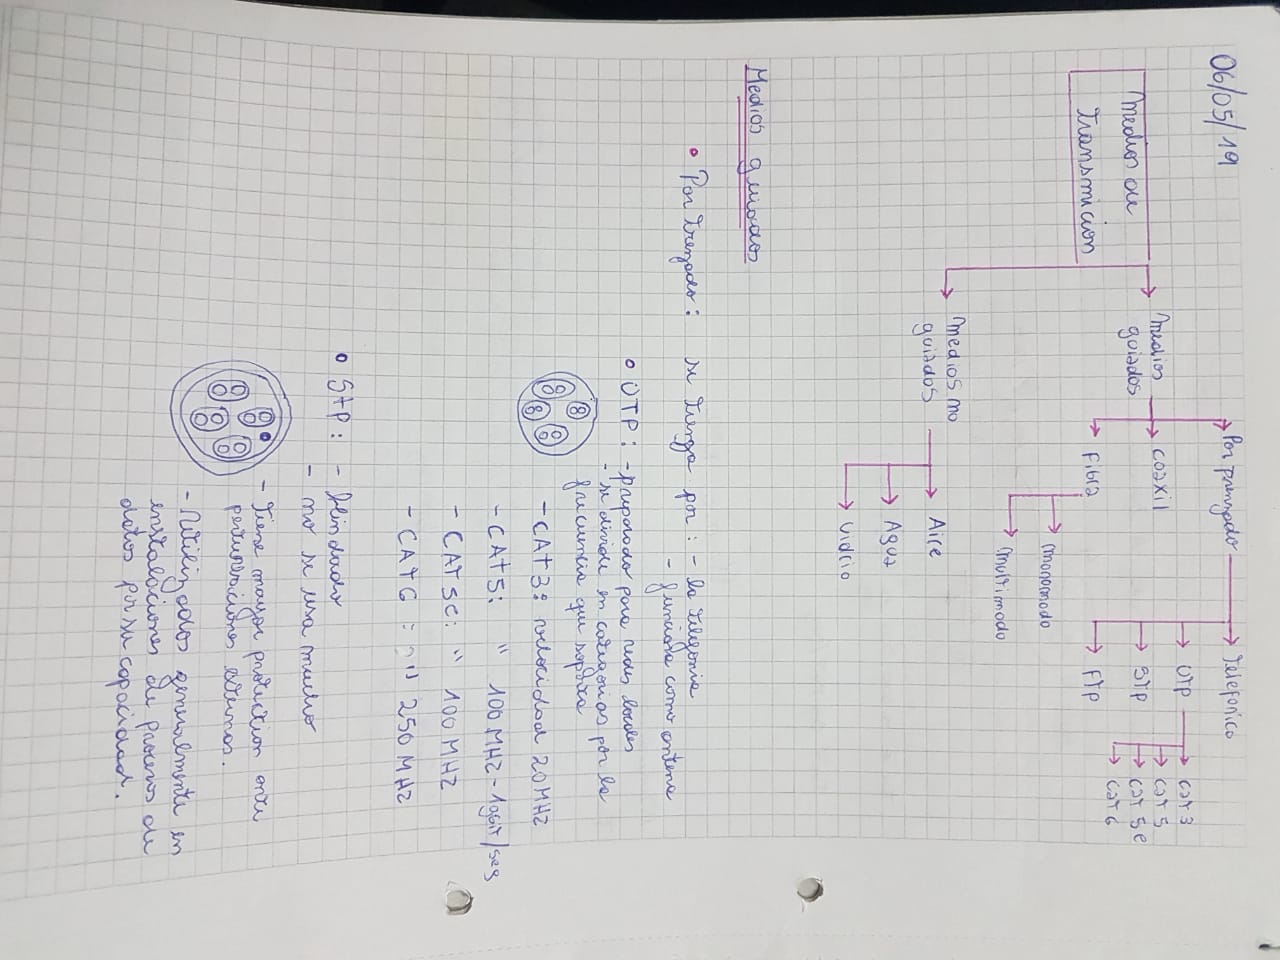 06/05/19
Par prenzado
Telefonico
Medios
guiados
coaxil
UTP
cat 3
cat 5
cat 5e
cat 6
STP
FTP
Medios de
Transmicion
Fibra
monomodo
multimodo
Medios no
guiados
Aire
Agua
vidrio
Medios guiados
• Par trenzado: se trenza por: - la telefonia
- funciona como antena
• UTP: - preparado para redes locales
- se divide en categorias por la
frecuencia que soporta
- CAT3: velocidad 20 MHZ
- CAT5: " 100 MHZ - 1gbit/seg
- CAT5e: " 100 MHZ
- CAT6 = " 250 MHZ
• STP: - blindado
- no se usa mucho
- Tiene mayor protection ante
perturvaciones externas.
- Utilizados generalmente en
instalaciones de procesos de
datos por su capacidad.